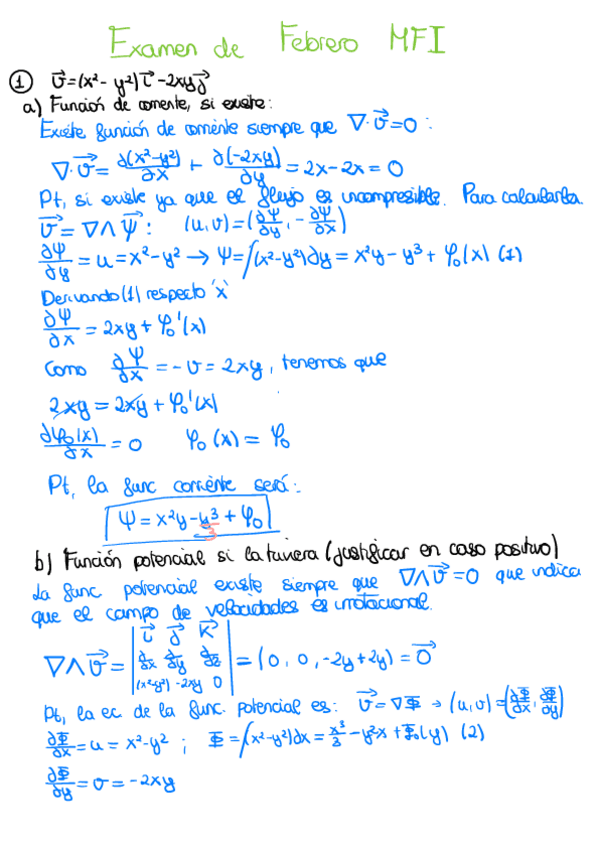 Examen de Febrero MFI
① v⃗=(x²-y²)i⃗-2xyj⃗
a) Función de corriente, si existe:
Existe función de corriente siempre que ∇·v⃗=0:
∇·v⃗=∂(x²-y²)/∂x + ∂(-2xy)/∂y = 2x-2x=0
Pt, si existe ya que el flujo es incompresible. Para calcularla
v⃗=∇∧Ψ⃗: (u,v)=(∂Ψ/∂y, -∂Ψ/∂x)
∂Ψ/∂y=u=x²-y² → Ψ=∫(x²-y²)∂y=x²y-y³+φ₀(x) (1)
Derivando (1) respecto 'x'
∂Ψ/∂x=2xy+φ₀'(x)
Como ∂Ψ/∂x=-v=2xy, tenemos que
2xy=2xy+φ₀'(x)
∂φ₀(x)/∂x=0 φ₀(x)=φ₀
Pt, la func corriente será:
Ψ=x²y-y³/3+φ₀
b) Función potencial si la tuviera (justificar en caso positivo)
La func potencial existe siempre que ∇∧v⃗=0 que indica
que el campo de velocidades es irrotacional.
∇∧v⃗=|i⃗ j⃗ k⃗
∂/∂x ∂/∂y ∂/∂z
(x²-y²) -2xy 0|=(0, 0, -2y+2y)=0⃗
Pt, la ec. de la func. potencial es: v⃗=∇Φ → (u,v)=(∂Φ/∂x, ∂Φ/∂y)
∂Φ/∂x=u=x²-y²; Φ=∫(x²-y²)dx=x³/3-y²x+Φ₀(y) (2)
∂Φ/∂y=v=-2xy